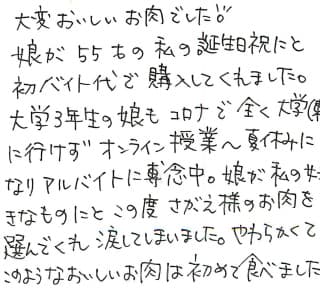 大変おいしいお肉でした!!
娘が55才の私の誕生日祝にと
初バイト代で購入してくれました。
大学3年生の娘もコロナで全く大学(専
に行けず オンライン授業〜夏休みに
なりアルバイトに専念中。娘が私の好
きなものにとこの度さがえ様のお肉を
選んでくれ涙してしまいました。やわらかくて
このようなおいしいお肉は初めて食べました